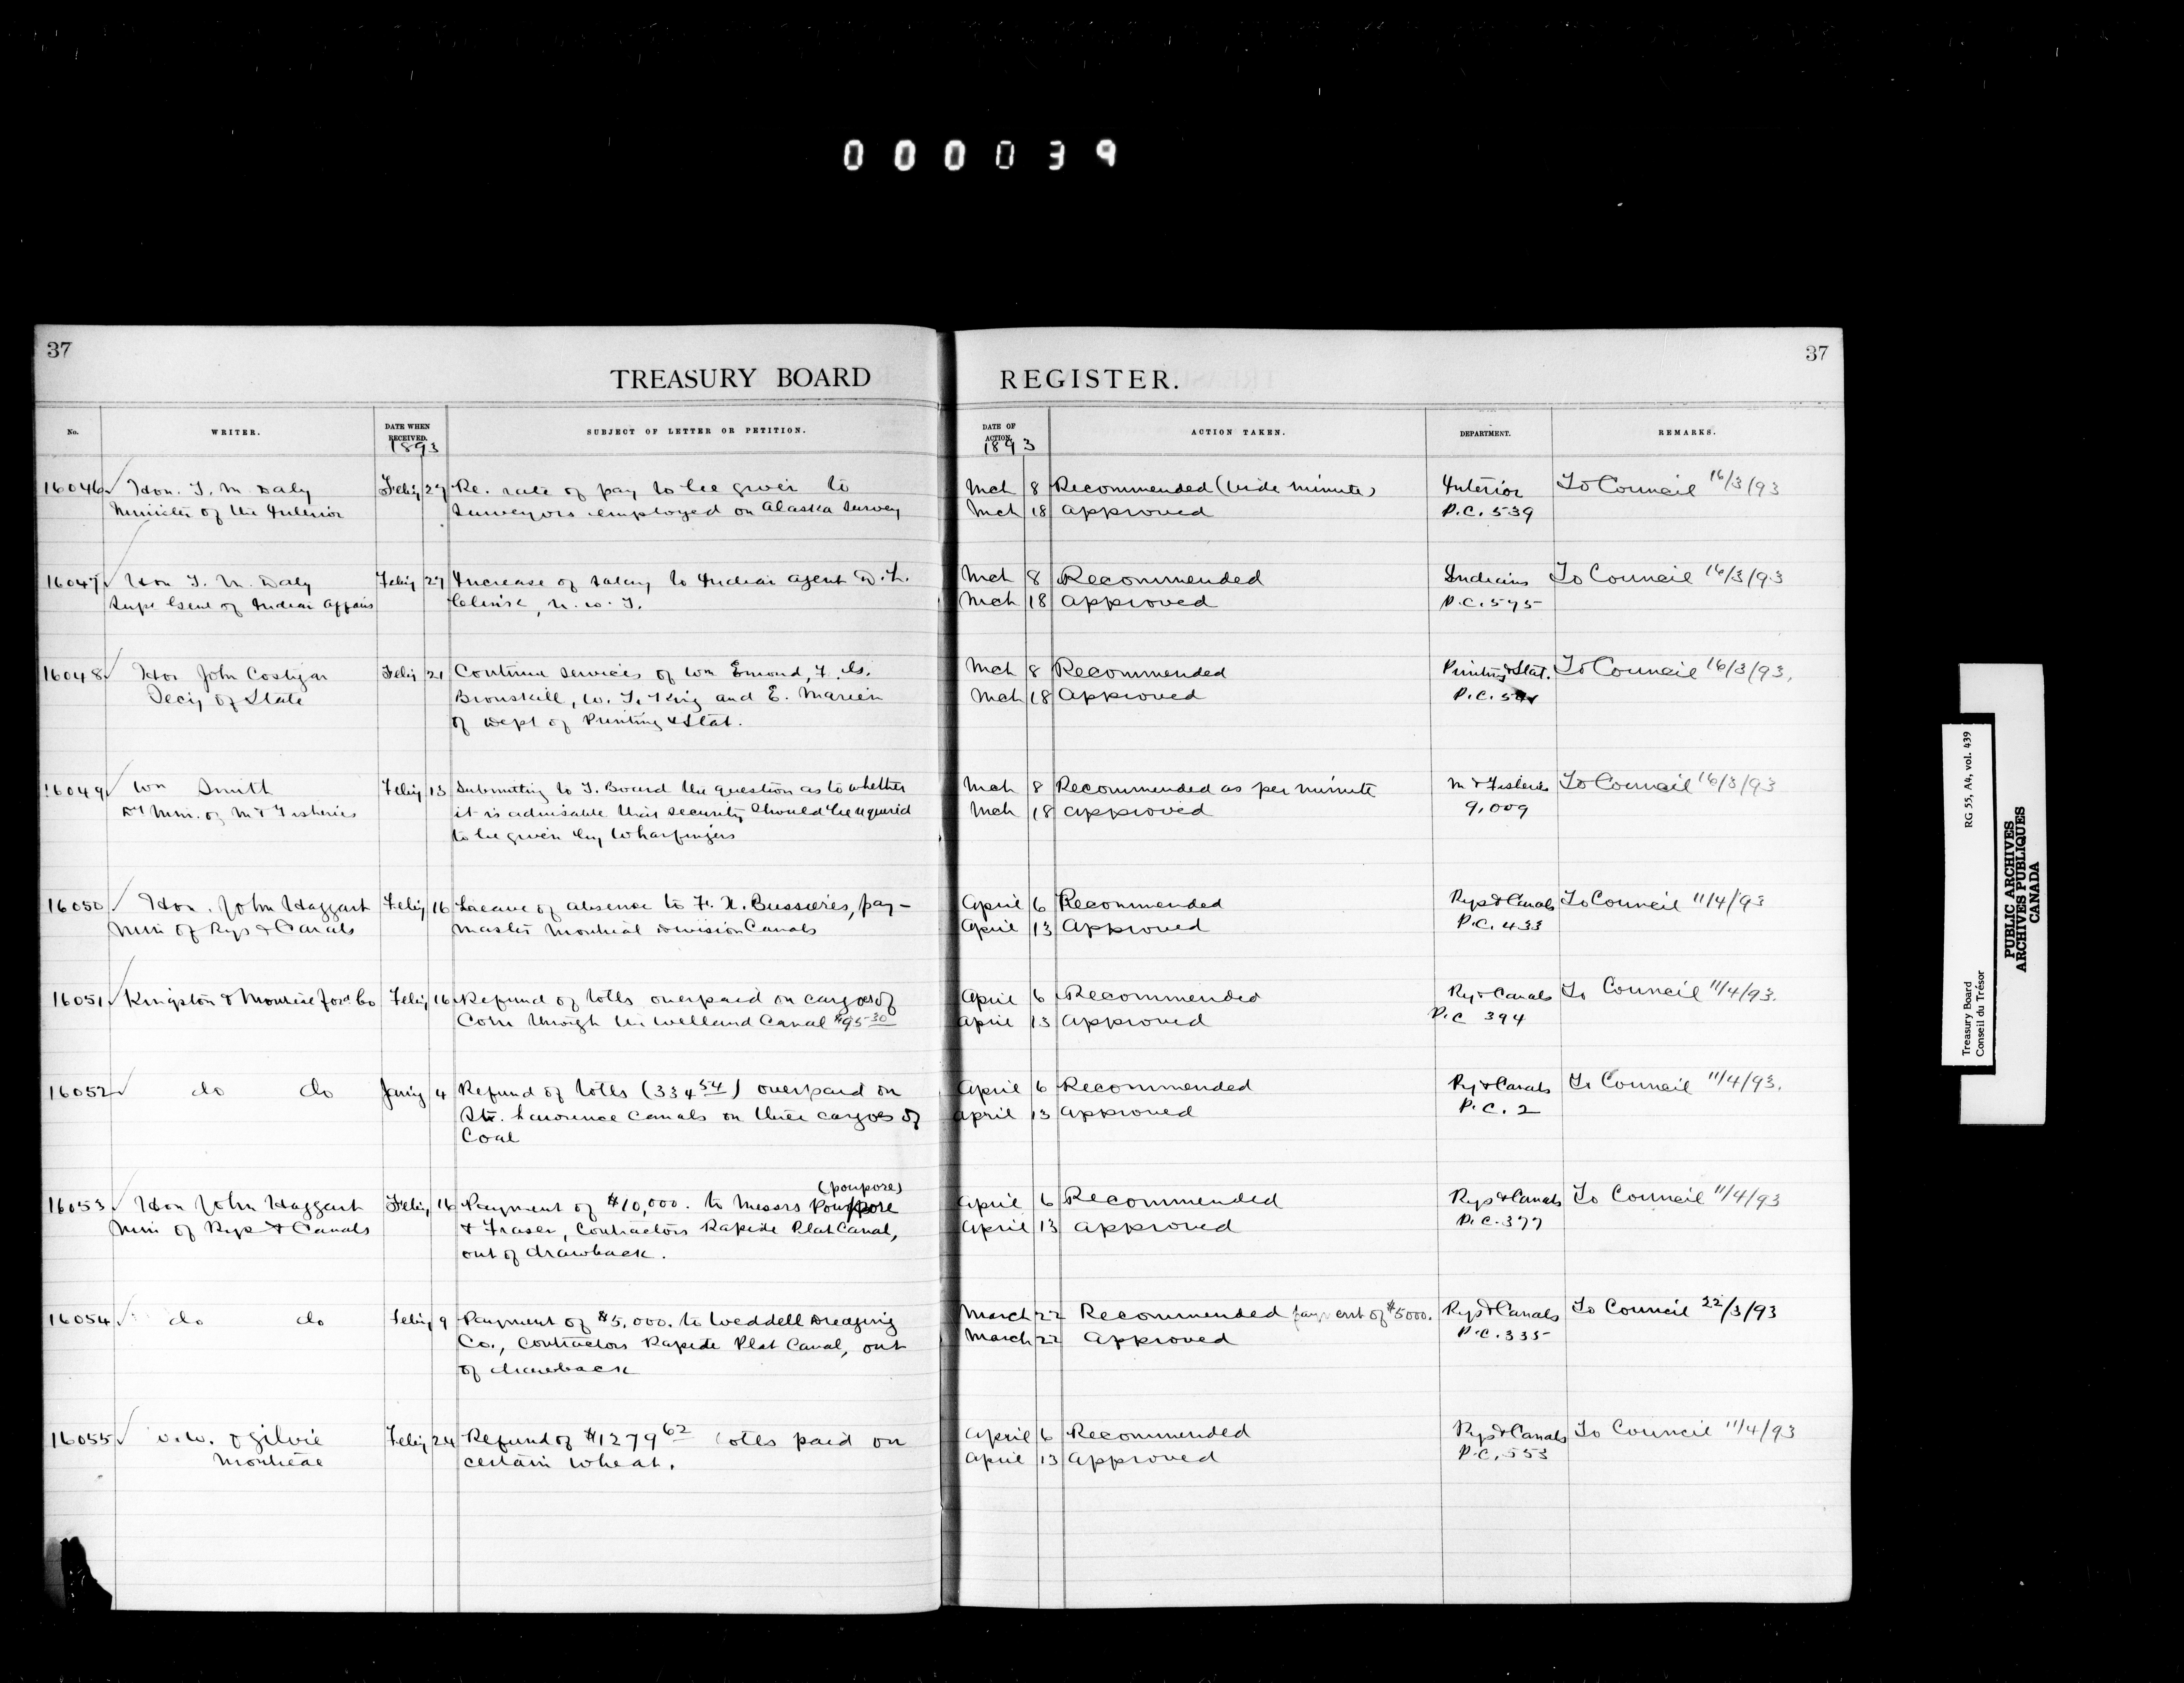 000039
37
37
TREASURY BOARD REGISTER.
No. WRITER. DATE WHEN RECEIVED. SUBJECT OF LETTER OR PETITION. DATE OF ACTION. ACTION TAKEN. DEPARTMENT. REMARKS.
1893 1893
16046 Hon. T. M. Daly Feby 27 Re. rate of pay to be given to Mch 8 Recommended (vide minute) Interior To Council 16/3/93
Minister of the Interior Surveyors employed on Alaska Survey Mch 18 Approved P.C. 539
16047 Hon T. M. Daly Feby 27 Increase of salary to Indian Agent D. L. Mch 8 Recommended Indians To Council 16/3/93
Supt Genl of Indian Affairs Clink, N. W. T. Mch 18 Approved P.C. 545
16048 Hon John Costigan Feby 21 Continue services of Wm Emond, F. Mch 8 Recommended Printing & Stat. To Council 16/3/93.
Secy of State Bronskill, W. T. King and E. Marien Mch 18 Approved P.C.
of Dept of Printing & Stat.
16049 Wm Smith Feby 13 Submitting to T. Board the question as to whether Mch 8 Recommended as per minute M & Fisheries To Council 16/3/93
Dy Min. of M & Fisheries it is advisable that security should be required Mch 18 Approved 9,009
to be given by Wharfingers
16050 Hon. John Haggart Feby 16 Leave of absence to F. X. Bussieres, pay- April 6 Recommended Rys & Canals To Council 11/4/93
Min of Rys & Canals master Montreal Division Canals April 13 Approved P.C. 433
16051 Kingston & Montreal Ford Co Feby 16 Refund of tolls overpaid on cargoes of April 6 Recommended Ry & Canals To Council 11/4/93.
Corn through the Welland Canal $95 30 April 13 Approved P.C 394
16052 do do Jany 4 Refund of tolls (334 54) overpaid on April 6 Recommended Ry & Canals To Council 11/4/93.
St. Lawrence Canals on three cargoes of April 13 Approved P.C. 2
Coal
(Poupore)
16053 Hon John Haggart Feby 16 Payment of $10,000. to Messrs Poupore April 6 Recommended Rys & Canals To Council 11/4/93
Min of Rys & Canals & Fraser, Contractors Rapide Plat Canal, April 13 Approved P.C. 377
out of drawback.
16054 do do Feby 9 Payment of $5,000. to Weddell Dredging March 22 Recommended payment of $5000. Rys & Canals To Council 22/3/93
Co., Contractors Rapide Plat Canal, out March 22 Approved P.C. 335
of drawback
16055 W. W. Ogilvie Feby 24 Refund of $1279 62 tolls paid on April 6 Recommended Rys & Canals To Council 11/4/93
Montreal certain wheat. April 13 Approved P.C. 553
Treasury Board RG 55, A4, vol. 439
Conseil du Trésor
PUBLIC ARCHIVES
ARCHIVES PUBLIQUES
CANADA